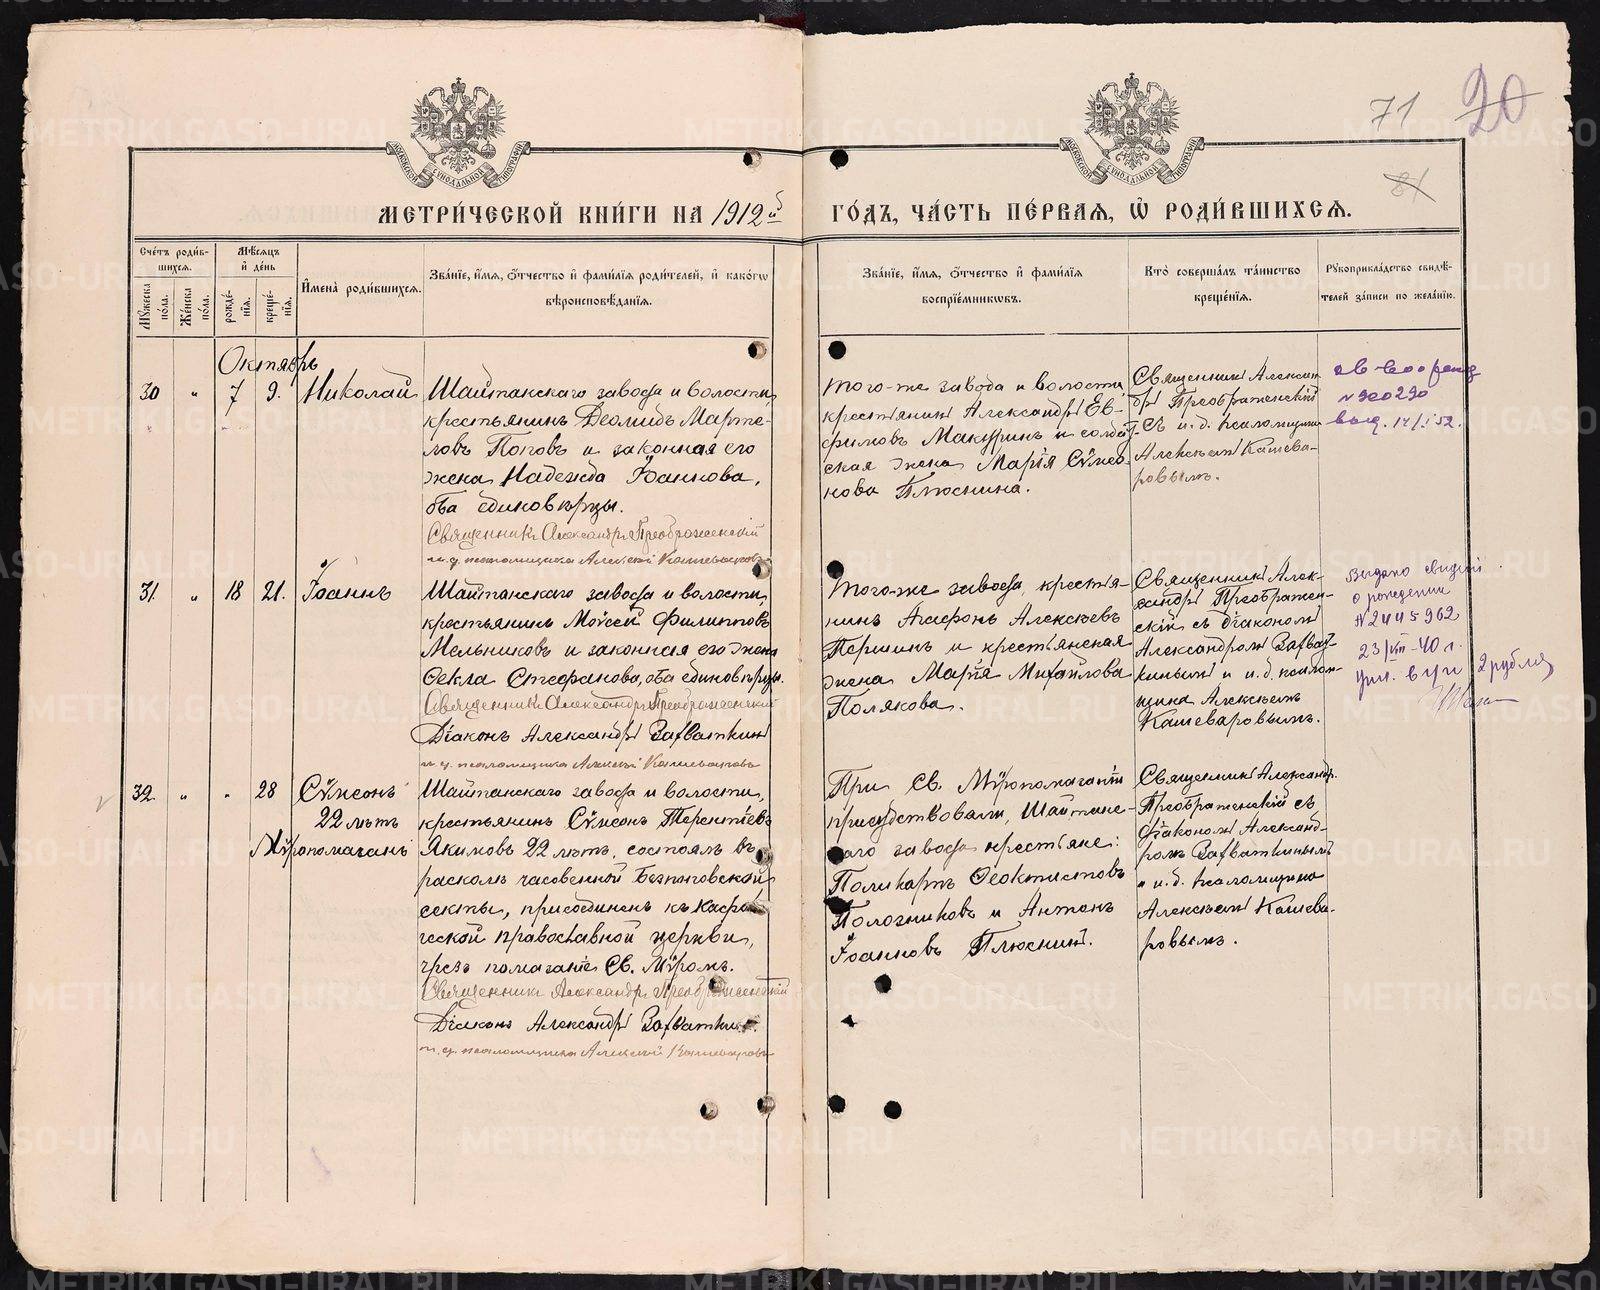 71 20
81
МЕТРИ́ЧЕСКОЙ КНИ́ГИ НА 1912й
ГО́ДЪ, ЧА́СТЬ ПЕ́РВАѦ, Ѡ҆ РОДИ́ВШИХСѦ.
МОСКОВСКОЙ СѴНОДАЛЬНОЙ ТИПОГРАФІИ
МОСКОВСКОЙ СѴНОДАЛЬНОЙ ТИПОГРАФІИ
Сче́тъ роди́в-
шихсѧ.
Мѣ́сѧцъ
и҆ де́нь
Мꙋ́жеска
по́ла.
Же́нска
по́ла.
рожде́-
нїѧ.
креще́-
нїѧ.
И҆мена̀ роди́вшихсѧ.
Зва́нїе, и҆́мѧ, ѻ҆́тчество и҆ фами́лїѧ роди́телей, и҆ како́гѡ
вѣроисповѣ́данїѧ.
Зва́нїе, и҆́мѧ, ѻ҆́тчество и҆ фами́лїѧ
воспрїе́мникѡвъ.
Кто̀ соверша́лъ та́инство
креще́нїѧ.
Рꙋкоприкла́дство свидѣ́-
телей за́писи по жела́нїю.
Октябрь
30 „ 7 9. Николай
Шайтанскаго завода и волости,
крестьянинъ Деомидъ Марте-
ловъ Поповъ и законная его
жена Надежда Іоаннова,
оба единовѣрцы.
Священникъ Александръ Преображенскій
и. д. псаломщика Алексѣй Кашеваровъ
того-же завода и волости
крестьянинъ Александръ Ев-
фимовъ Макуринъ и солдат-
ская жена Марія Сѵмео-
нова Плюснина.
Священникъ Алексан-
дръ Преображенскій
съ и. д. псаломщика
Алексѣемъ Кашева-
ровымъ.
№ 920290
выд. 14/I 52.
31. „ 18 21. Іоаннъ
Шайтанскаго завода и волости,
крестьянинъ Моѵсей Филипповъ
Мельниковъ и законная его жена
Ѳекла Стефанова, оба единовѣрцы.
Священникъ Александръ Преображенскій
Діаконъ Александръ Захваткинъ
и. д. псаломщика Алексѣй Кашеваровъ
Того-же завода, крестья-
нинъ Агафонъ Алексѣевъ
Першинъ и крестьянская
жена Марія Михайлова
Полякова.
Священникъ Алек-
сандръ Преображен-
скій съ діакономъ
Александромъ Захват-
кинымъ и и. д. псалом-
щика Алексѣемъ
Кашеваровымъ.
Выдано свидет.
о рождении
№ 2445962
23/VIII-40 г.
2 рубля
32. „ „ 28 Сѵмеонъ
22 лѣтъ
Мѵропомазанъ
Шайтанскаго завода и волости,
крестьянинъ Сѵмеонъ Терентіевъ
Якимовъ 22 лѣтъ, состоялъ въ
расколѣ часовенной Безпоповской
секты, присоединенъ къ Каѳоли-
ческой православной церкви,
чрезъ помазаніе Св. Мѵромъ.
Священникъ Александръ Преображенскій
Діаконъ Александръ Захваткинъ.
и. д. псаломщика Алексѣй Кашеваровъ
При Св. Мѵропомазаніи
присудствовали, Шайтанс-
каго завода крестьяне:
Поликарпъ Ѳеоктистовъ
Полозниковъ и Антонъ
Іоанновъ Плюснинъ.
Священникъ Александръ
Преображенскій съ
діакономъ Александ-
ромъ Захваткинымъ
и и. д. псаломщика
Алексѣемъ Кашева-
ровымъ.
METRIKI.GASO-URAL.RU